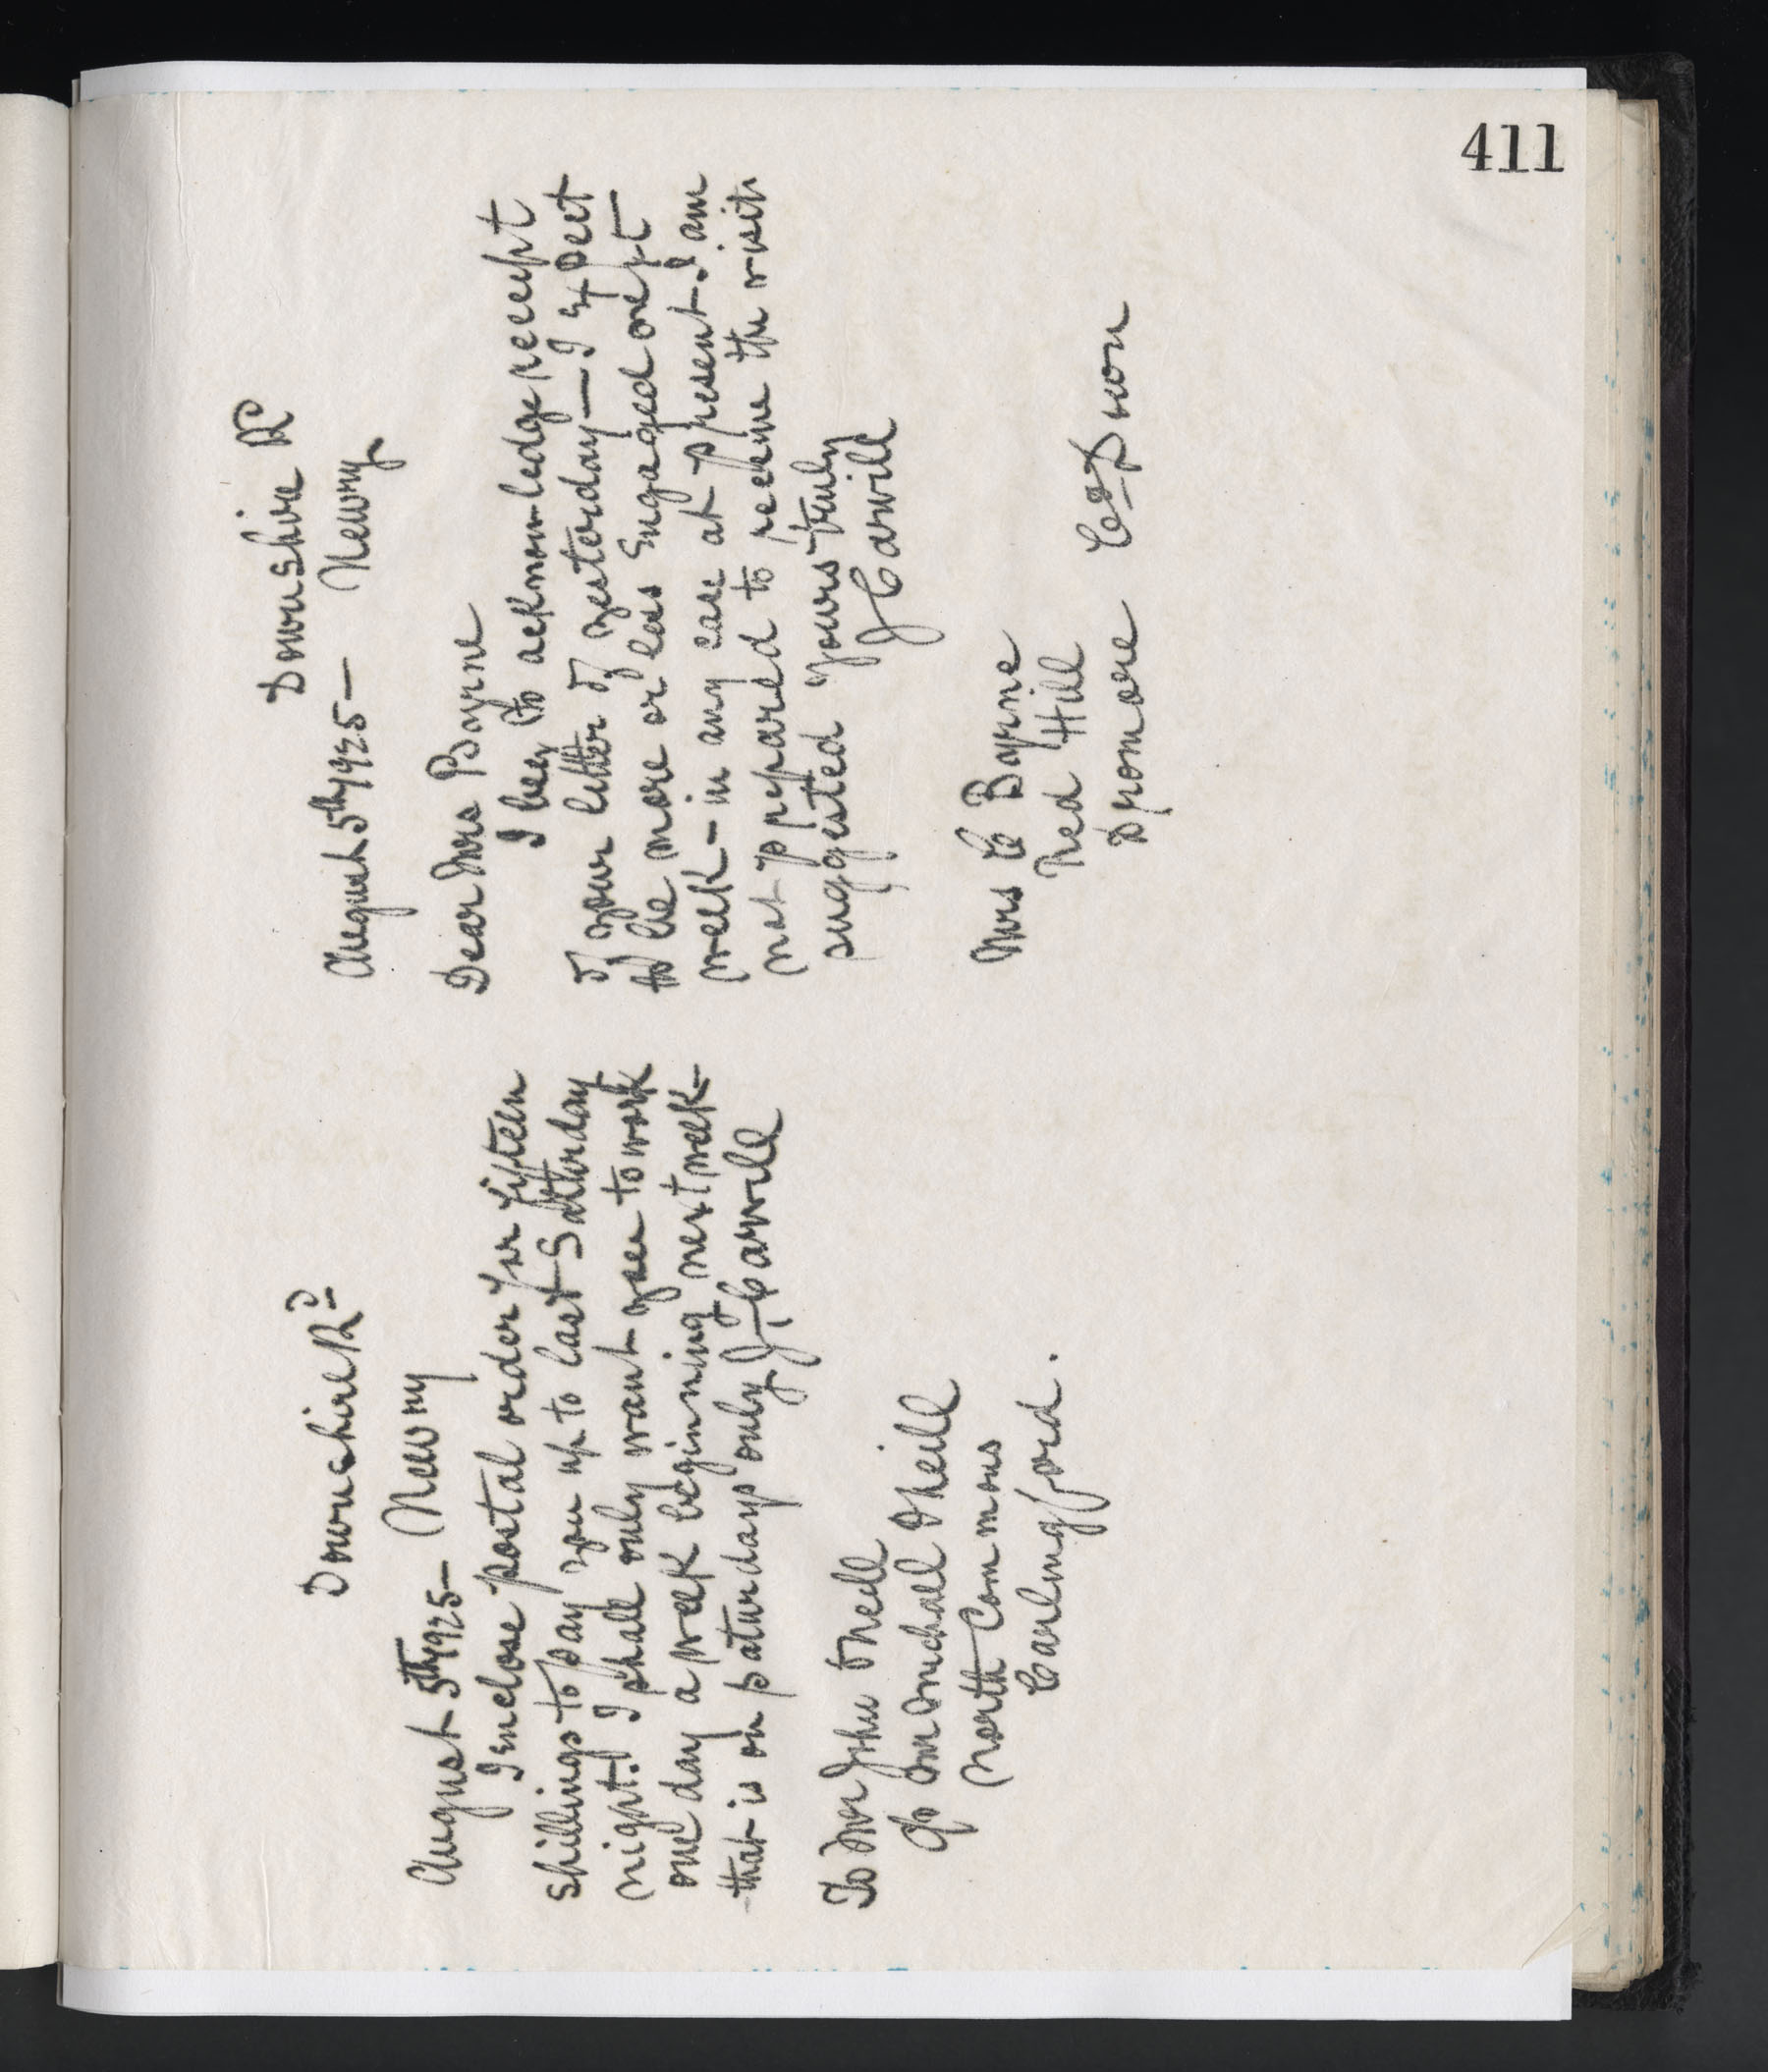 411
Downshire Rd
August 5th 1925— Newry
I enclose postal order for fifteen
shillings to pay you up to last Satturday
night. I shall only want you to work
one day a week beginning next week—
that is on saturdays only J. F. Carvill
To Mr John ONeill
c/o Mr Michael ONeill
North Commons
Carlingford.
Downshire Rd
August 5th 1925— Newry
Dear Mrs Byrne
I beg to acknowledge receept
of your letter of yesterday— I expect
to be more or less engaged one pt
week— in any case at present. I am
not prepared to receive the visit
suggested Yours truly
J Carvill
Mrs C Byrne
Red Hill
Dromore Co. Down